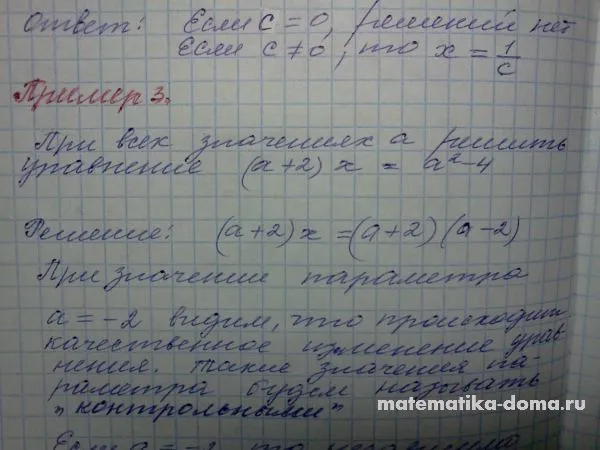 Ответ: Если с = 0, решений нет
Если с ≠ 0, то x = 1/c
Пример 3.
При всех значениях а решить
уравнение (а+2) x = a²-4
Решение: (а+2) x = (а+2) (а-2)
При значении параметра
а = -2 видим, что происходит
качественное изменение урав-
нения. Такие значения па-
раметра будем называть
"контрольными"
matematika-doma.ru
Если а = -2, то уравнение